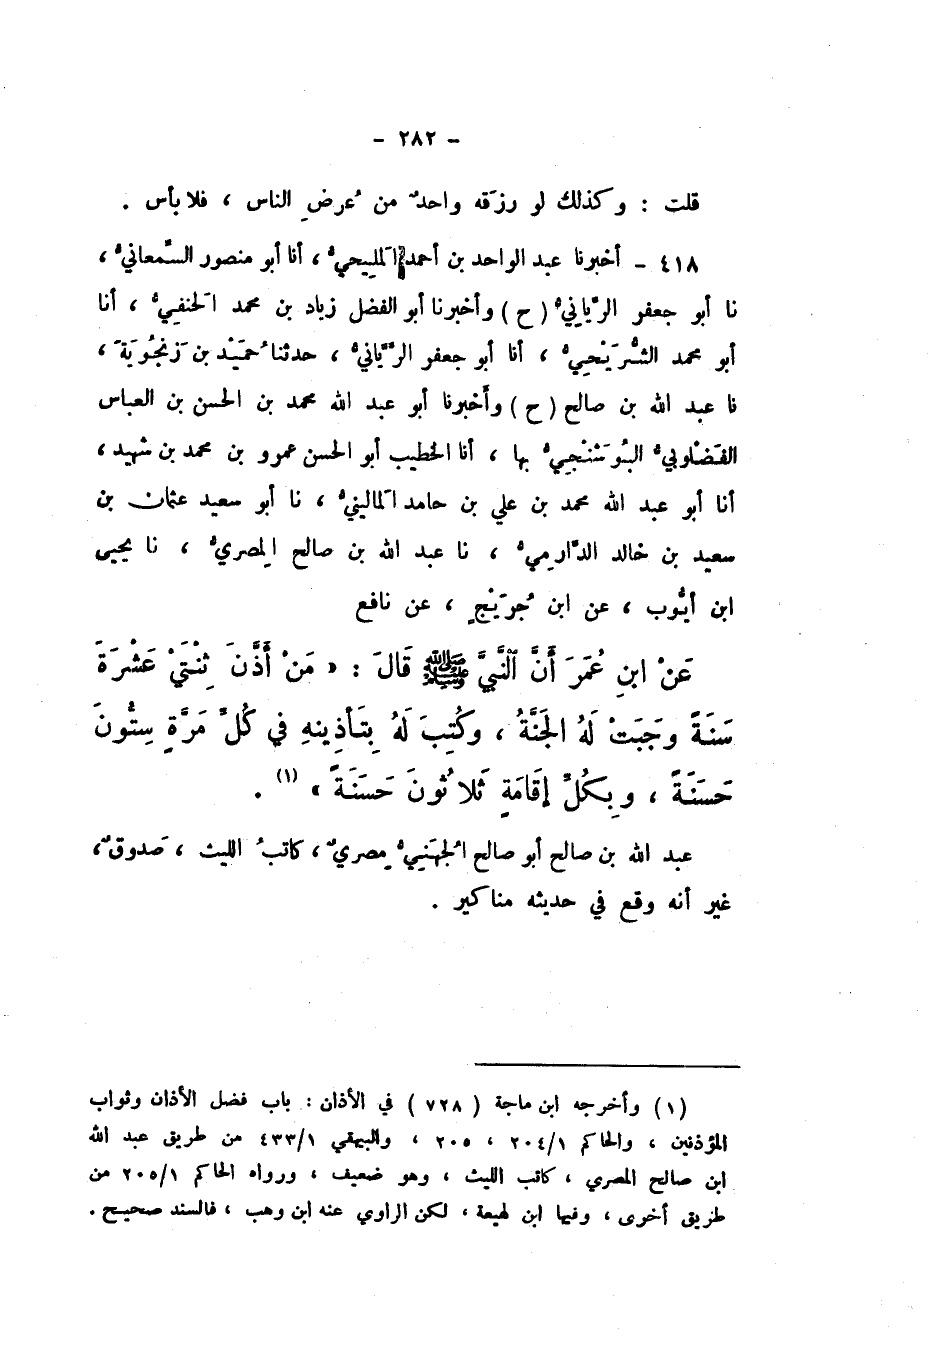 - ٢٨٢ -
قلت : وكذلك لو رزَقه واحدٌ من عُرضِ الناس ، فلا بأس .
٤١٨ - أخبرنا عبد الواحد بن أحمد المَلِيحيُّ ، أنا أبو منصور السَّمعانيُّ ،
نا أبو جعفر الرَّيانيُّ ( ح ) وأخبرنا أبو الفضل زياد بن محمد الحَنفيُّ ، أنا
أبو محمد الشُّرَيْحيُّ ، أنا أبو جعفر الرَّيَّانيُّ ، حدثنا حُمَيْد بن زَنجُوَيَةَ ،
نا عبد الله بن صالح ( ح ) وأَخبرنا أبو عبد الله محمد بن الحسن بن العباس
الفَضْلوبيُّ البُوسَنْجيُّ بها ، أنا الخطيب أبو الحسن عمرو بن محمد بن شهيد ،
أنا أبو عبد الله محمد بن علي بن حامد المَالينيُّ ، نا أبو سعيد عثمان بن
سعيد بن خالد الدَّارِميُّ ، نا عبد الله بن صالح المِصريُّ ، نا يحيى
ابن أيُّوب ، عن ابن جُرَيْجٍ ، عن نافع
عَنْ ابنِ عُمَرَ أَنَّ ٱلنَّبِيَّ ﷺ قَالَ : « مَنْ أَذَّنَ ثِنْتَيْ عَشْرَةَ
سَنَةً وَجَبَتْ لَهُ الجَنَّةُ ، وَكُتِبَ لَهُ بِتَأذِينهِ في كُلِّ مَرَّةٍ سِتُّونَ
حَسَنَةً ، وبِكُلِّ إقَامَةٍ ثَلاثُونَ حَسَنَةً » (١) .
عبد الله بن صالح أبو صالح الجُهَنِيُّ مِصريٌّ ، كاتبُ الليث ، صَدوقٌ ،
غير أنه وقع في حديثه مناكير .
(١) وأخرجه ابن ماجة ( ٧٢٨ ) في الأذان : باب فضل الأذان وثواب
المؤذنين ، والحاكم ٢٠٤/١ ، ٢٠٥ ، والبيهقي ٤٣٣/١ من طريق عبد الله
ابن صالح المصري ، كاتب الليث ، وهو ضعيف ، ورواه الحاكم ٢٠٥/١ من
طريق أخرى ، وفيها ابن لهيعة ، لكن الراوي عنه ابن وهب ، فالسند صحيح .